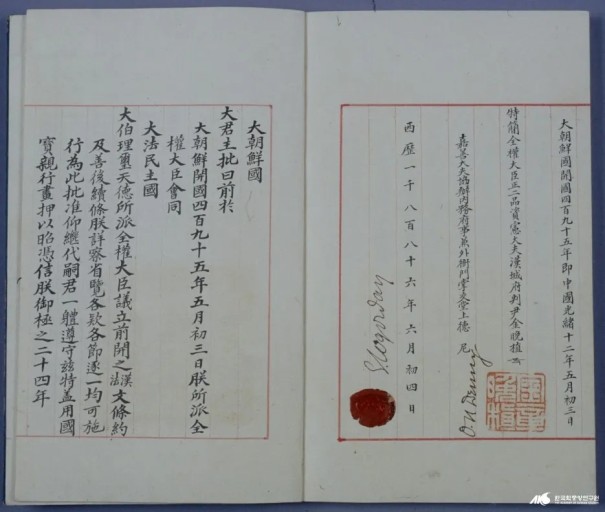 大朝鮮國開國四百九十五年即中國光緒十二年五月初三日
特簡全權大臣正二品資憲大夫漢城府判尹金晚植
嘉善大夫協辦內務府事兼外衙門掌交堂上德尼
O.N Denny
西歷一千八百八十六年六月初四日
大朝鮮國
大君主批曰前於
大朝鮮開國四百九十五年五月初三日朕所派全
權大臣會同
大法民主國
大伯理璽天德所派全權大臣議立前開之漢法文條約
及善後續條朕詳察省覽各款各節逐一均可施
行為此批准仰繼代嗣君一軆遵守玆特盖用國
寶親行畫押以昭憑信朕御極之二十四年
한국학중앙연구원